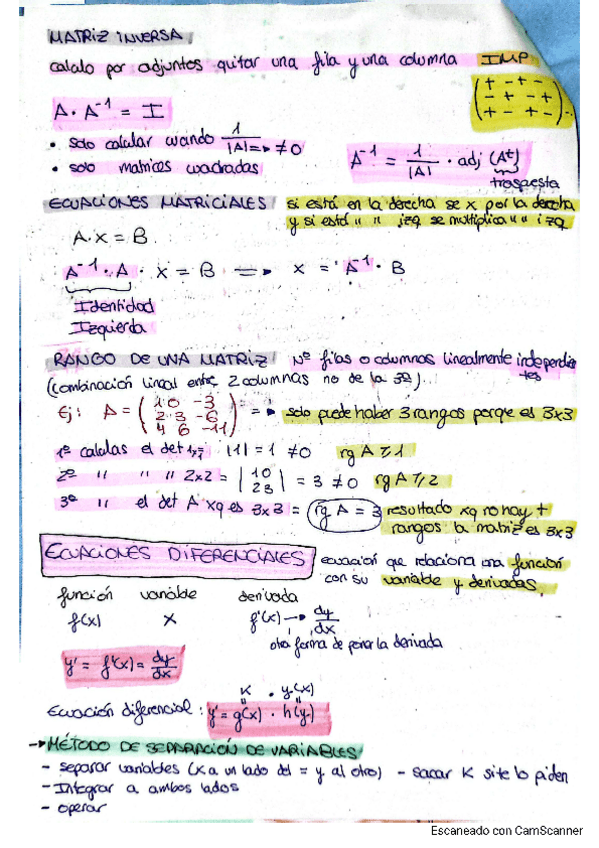 MATRIZ INVERSA
calculo por adjuntos quitar una fila y una columna IMP
(+ - + -
- + - +
+ - + -)
A · A⁻¹ = I
• solo calcular cuando 1/|A| => ≠ 0
• solo matrices cuadradas
A⁻¹ = 1/|A| · adj (Aᵗ)
traspesta
ECUACIONES MATRICIALES si está en la derecha se x por la derecha
y si está " " izq se multiplica " " izq
A · x = B
A⁻¹ · A · x = B => x = A⁻¹ · B
Identidad
Izquierda
RANGO DE UNA MATRIZ Nº filas o columnas linealmente independientes
(combinación lineal entre 2 columnas no de la 3ª)
Ej: A = (1 0 -3
2 3 -6
4 6 -11) = solo puede haber 3 rangos porque es 3x3
1º calculas el det 1x1 |1| = 1 ≠ 0 rg A ≥ 1
2º " " " 2x2 = |1 0
2 3| = 3 ≠ 0 rg A ≥ 2
3º " el det A xq es 3x3 = rg A = 3 resultado xq no hay +
rangos la matriz es 3x3
ECUACIONES DIFERENCIALES ecuación que relaciona una función
con su variable y derivadas.
función variable derivada
f(x) x f'(x) → dy/dx
otra forma de poner la derivada
y' = f'(x) = dy/dx
K · y(x)
Ecuación diferencial: y' = g(x) · h(y)
→ MÉTODO DE SEPARACIÓN DE VARIABLES
- separar variables (x a un lado del = y al otro) - sacar K si te lo piden
- Integrar a ambos lados
- operar
Escaneado con CamScanner